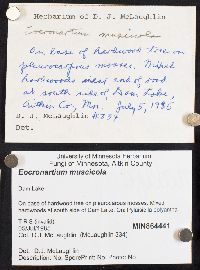 Herbarium of D. J. McLaughlin
Eocronartium muscicola
On base of hardwood tree on
pleurocarpous mosses. Mixed
hardwoods west end of road
at south side of Dam Lake,
Aitkin Co., Mn. July 5, 1985
D. J. McLaughlin #334
Det.
University of Minnesota Herbarium
Fungi of Minnesota, Aitkin County
Eocronartium muscicola
Dam Lake
On base of hardwood tree on pleurocarpous mosses. Mixed
hardwoods at south side of Dam Lake. On
T R S (invalid)
05/Jul/1985
Col.: D.J. McLaughlin (McLaughlin 334)
MIN864441
Det.: D.J. McLaughlin
Description: No SporePrint: No Photo: No